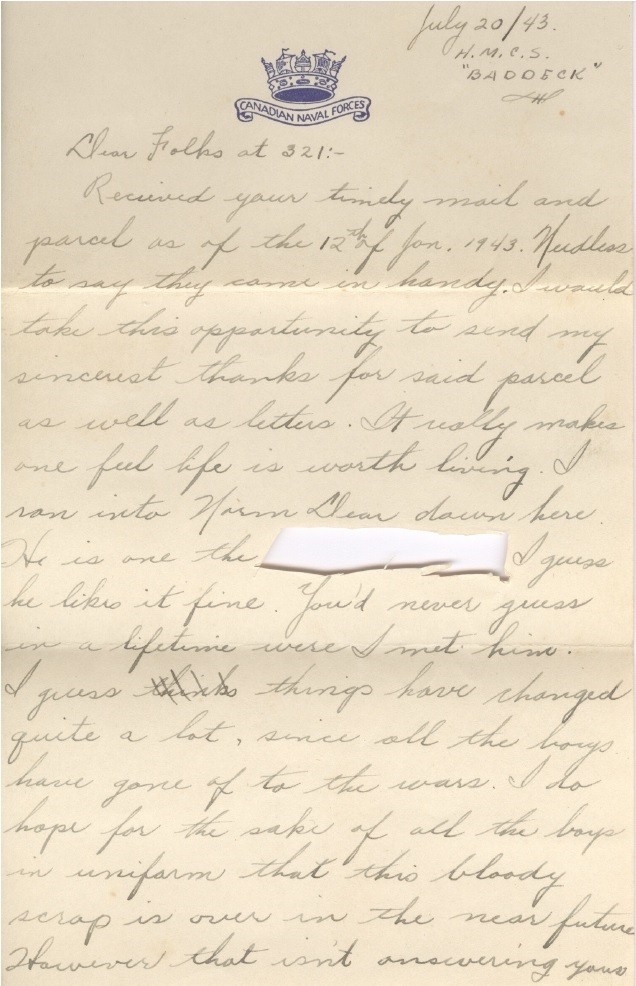 July 20/43.
H.M.C.S.
"BADDECK"
CANADIAN NAVAL FORCES
Dear Folks at 321:-
Recieved your timely mail and
parcel as of the 12th of Jan. 1943. Needless
to say they came in handy. I would
take this opportunity to send my
sincerest thanks for said parcel
as well as letters. It really makes
one feel life is worth living. I
ran into Norm Dear down here.
He is one the
I guess
he likes it fine. You'd never guess
in a lifetime were I met him.
I guess things have changed
quite a lot, since all the boys
have gone of to the wars. I do
hope for the sake of all the boys
in uniform that this bloody
scrap is over in the near future
However that isn't answering your